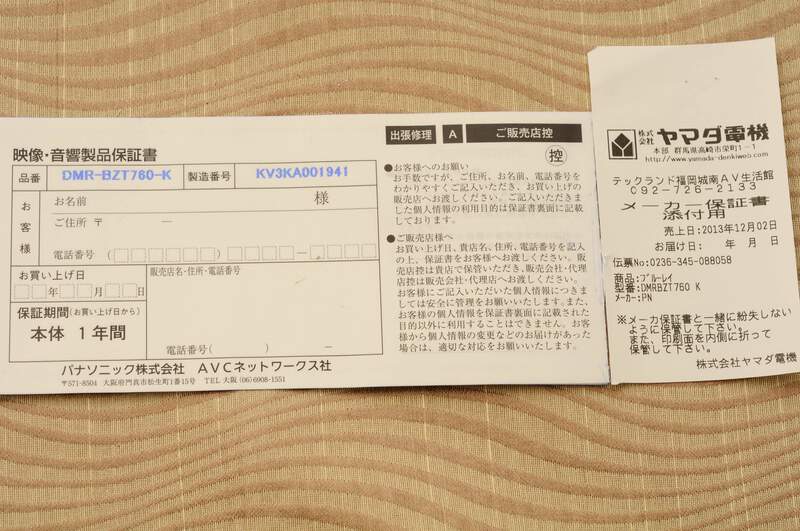 映像・音響製品保証書
品番 DMR-BZT760-K 製造番号 KV3KA001941
お客様
お名前 様
ご住所 〒 ー
電話番号 ( ) ー
お買い上げ日
年 月 日
販売店名・住所・電話番号
保証期間 (お買い上げ日から)
本体 1年間
電話番号( ) ー
パナソニック株式会社 AVCネットワークス社
〒571-8504 大阪府門真市松生町1番15号 TEL 大阪 (06) 6908-1551
出張修理 A ご販売店控
控
●お客様へのお願い
お手数ですが、ご住所、お名前、電話番号を
わかりやすくご記入いただき、お買い上げの
販売店へお渡しください。ご記入いただきま
した個人情報の利用目的は保証書裏面に記載
しております。
●ご販売店様へ
お買い上げ日、貴店名、住所、電話番号を記入
の上、保証書をお客様へお渡しください。販
売店控は貴店で保管いただき、販売会社・代理
店控は販売会社・代理店へお渡しください。
お客様にご記入いただいた個人情報につきま
しては安全に管理をお願いいたします。また、
お客様の個人情報を保証書裏面に記載された
目的以外に利用することはできません。お客
様から個人情報の変更などのお届けがあった
場合は、適切な対応をお願いいたします。
株式会社 ヤマダ電機
本部 群馬県高崎市栄町1-1
http://www.yamada-denkiweb.com
テックランド福岡城南AV生活館
092-726-2133
メーカー保証書
添付用
売上日:2013年12月02日
お届け日: 年 月 日
伝票No:0236-345-088058
商品:ブルーレイ
型番:DMRBZT760 K
メーカー:PN
※メーカ保証書と一緒に紛失しない
ように保管して下さい。
また、印刷面を内側に折って
保管して下さい。
株式会社ヤマダ電機